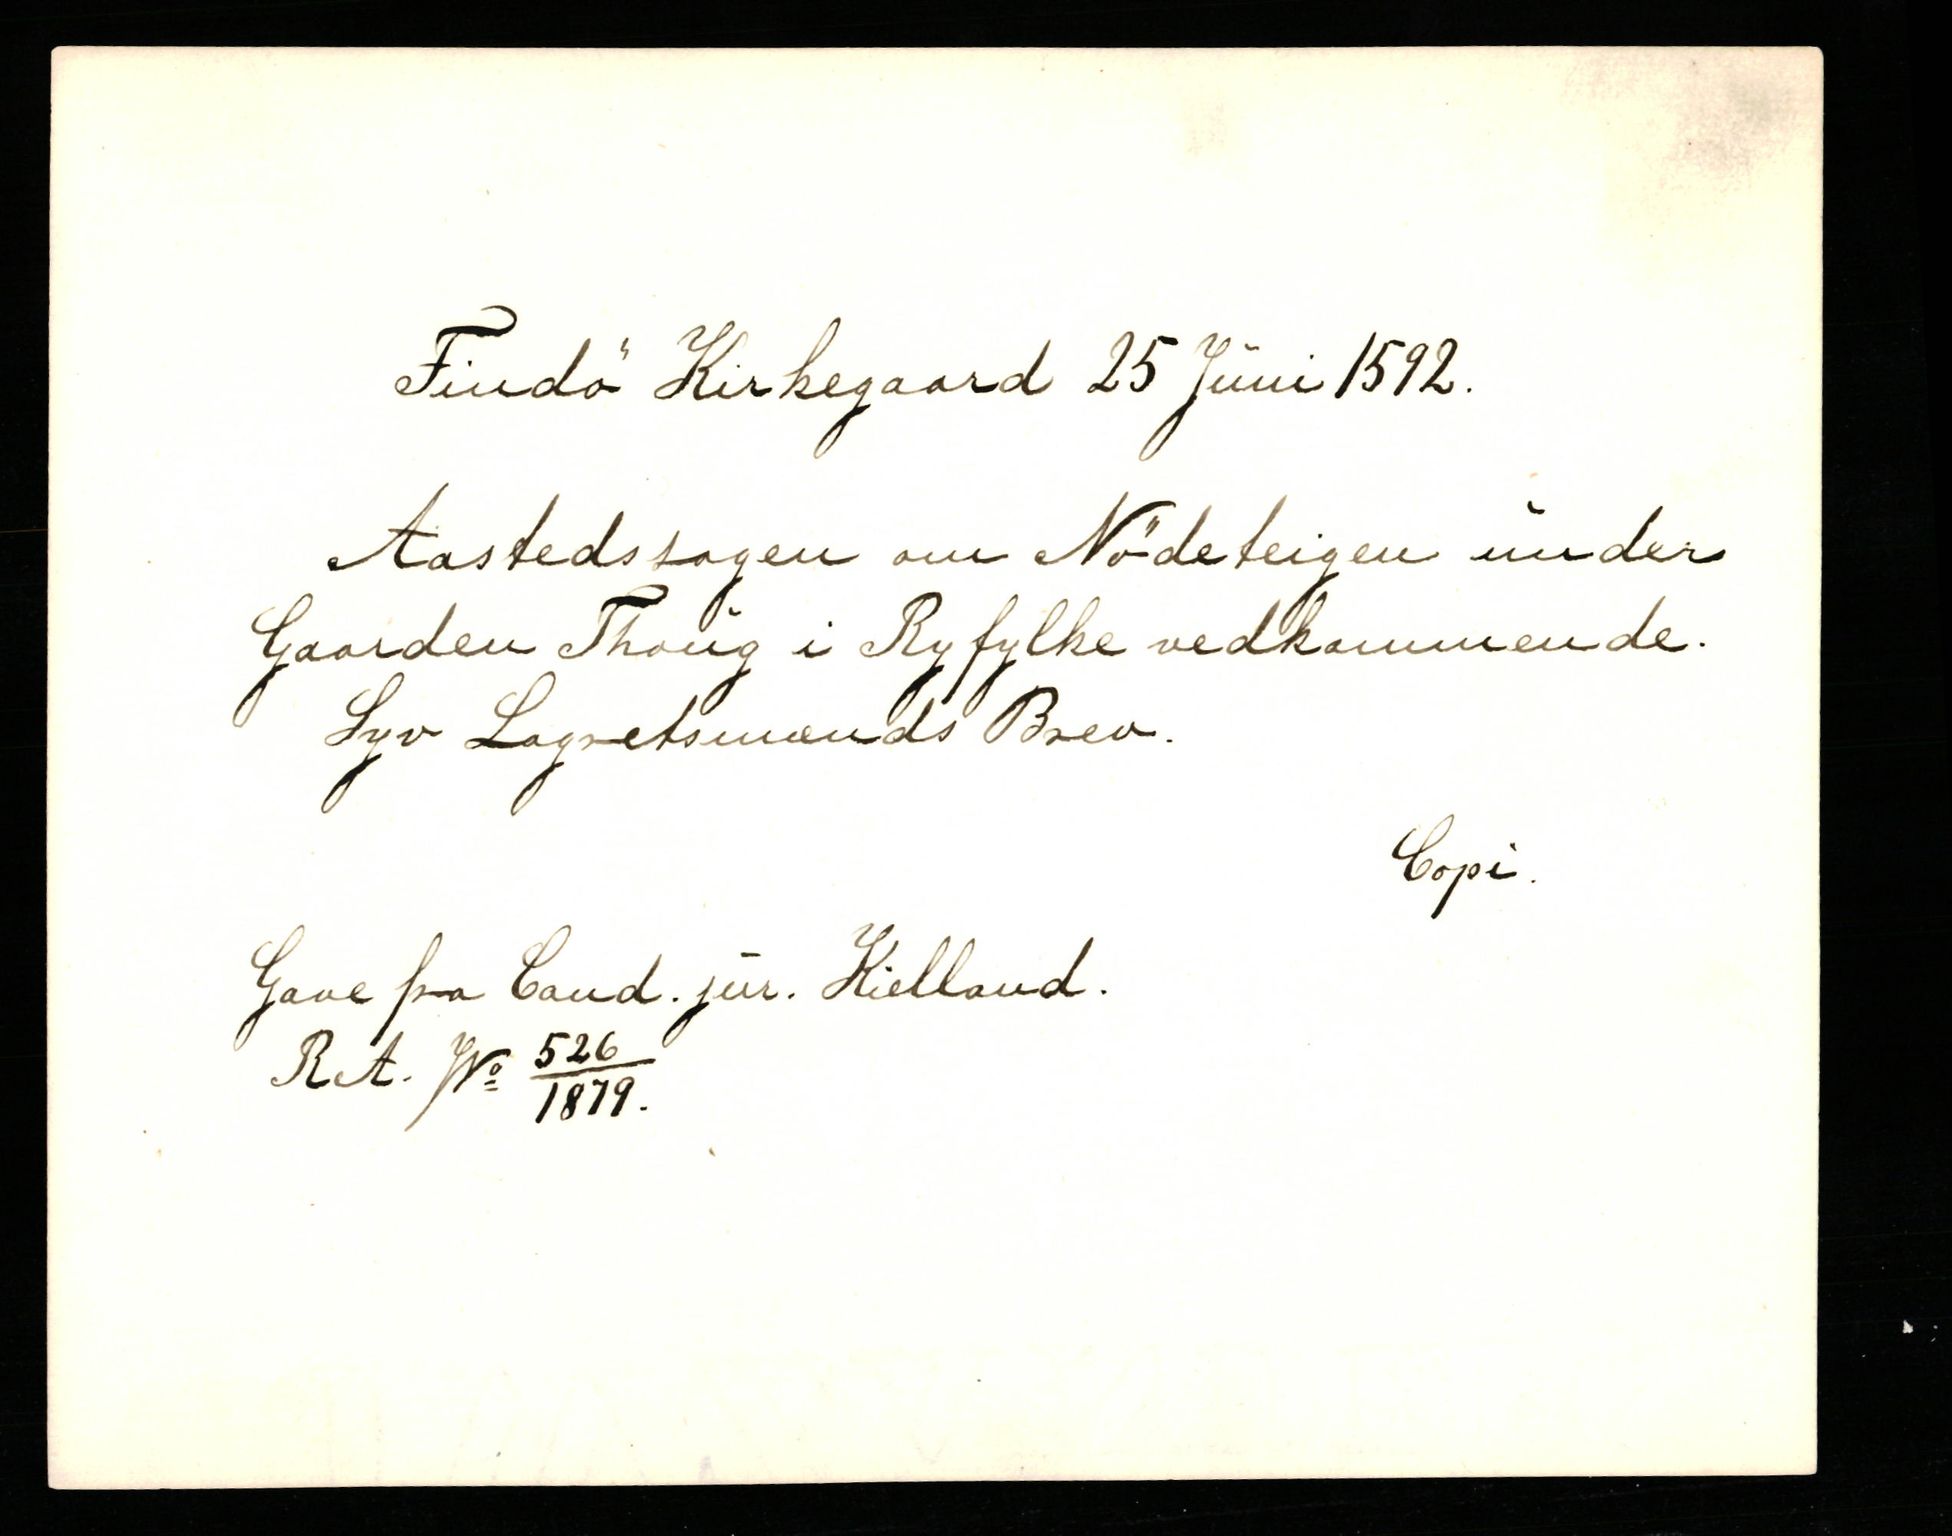 Findö Kirkegaard 25 Juni 1592.
Aastedssagen om Nödeteigen under
Gaarden Thoug i Ryfylke vedkommende.
Syv Lagretsmænds Brev.
Copi.
Gave fra Cand. jur. Kielland.
R.A. No 526/1879.